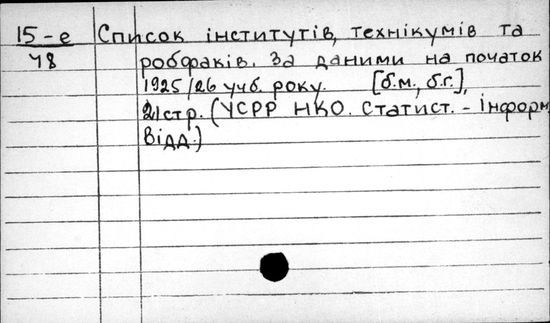 15-е Список інститутів, технікумів та
48 робфаків. За даними на початок
1925/26 учб. року. [б.м., б.г.],
21стр. (УСРР НКО. Статист. - Інформ.
Відд.)